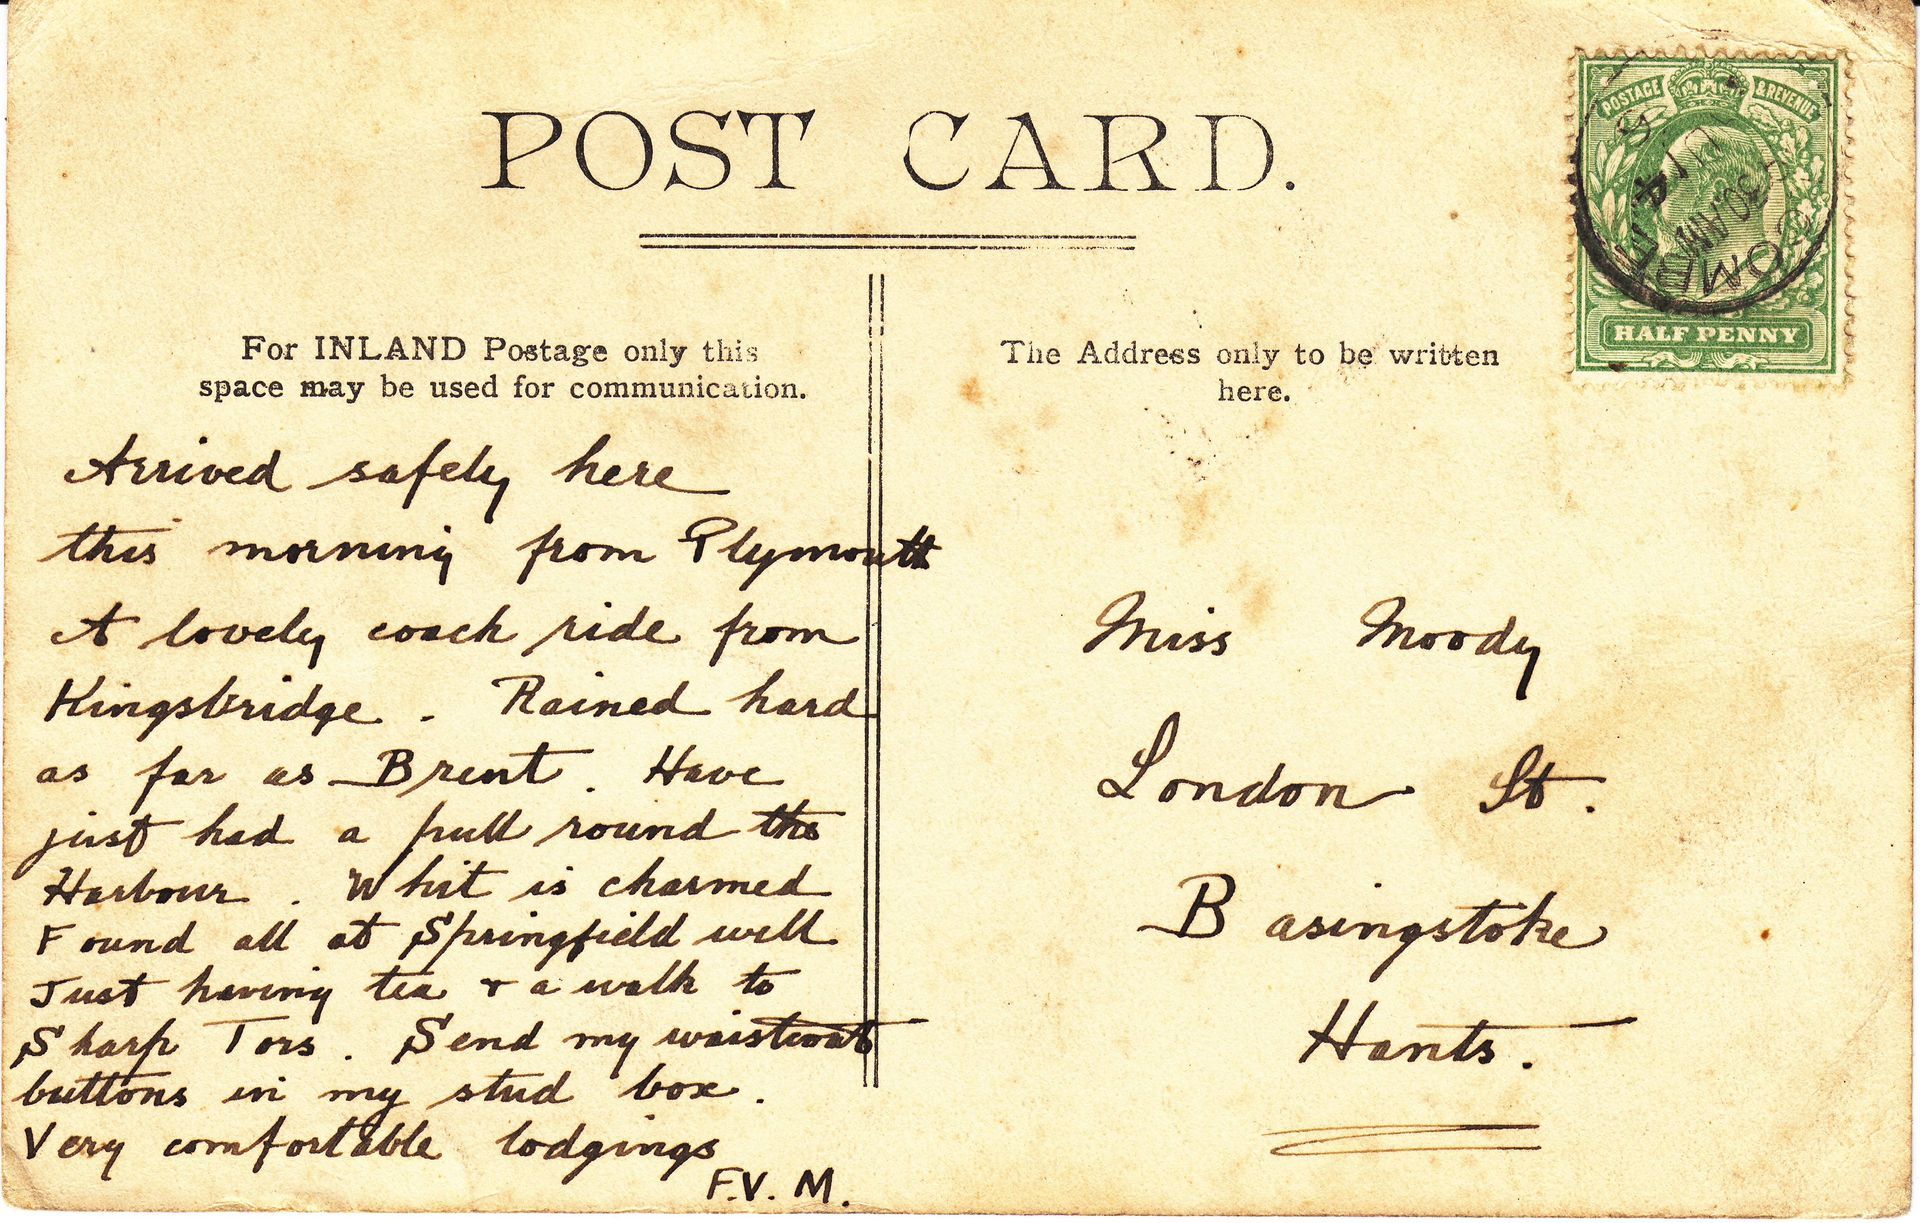 POST CARD.
POSTAGE & REVENUE
HALF PENNY
For INLAND Postage only this
space may be used for communication.
The Address only to be written
here.
Arrived safely here
this morning from Plymouth
A lovely coach ride from
Kingsbridge. Rained hard
as far as Brent. Have
just had a pull round the
Harbour. Whit is charmed
Found all at Springfield well
Just having tea & a walk to
Sharp Tors. Send my waistcoat
buttons in my stud box.
Very comfortable lodgings
F.V.M.
Miss Moody
London St.
Basingstoke
Hants.